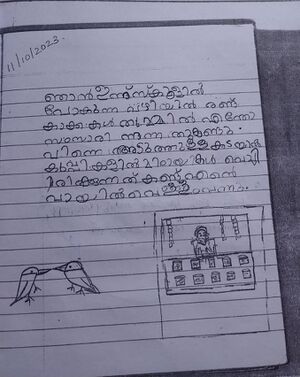 11/10/2023.
ഞാൻ ഇന്ന് സ്കൂളിൽ
പോകുന്ന വഴിയിൽ രണ്ട്
കാക്കകൾ തമ്മിൽ എന്തോ
സംസാരി ന്നുന്ന തുകണ്ടു.
പിന്നെ അടുത്തുള്ള കടയുടെ
കുപ്പികളിൽ മിഠായികൾ വെച്ചി
രിക്കുന്നത് കണ്ട് എന്റെ
വായിൽ വെള്ളം വന്നു.